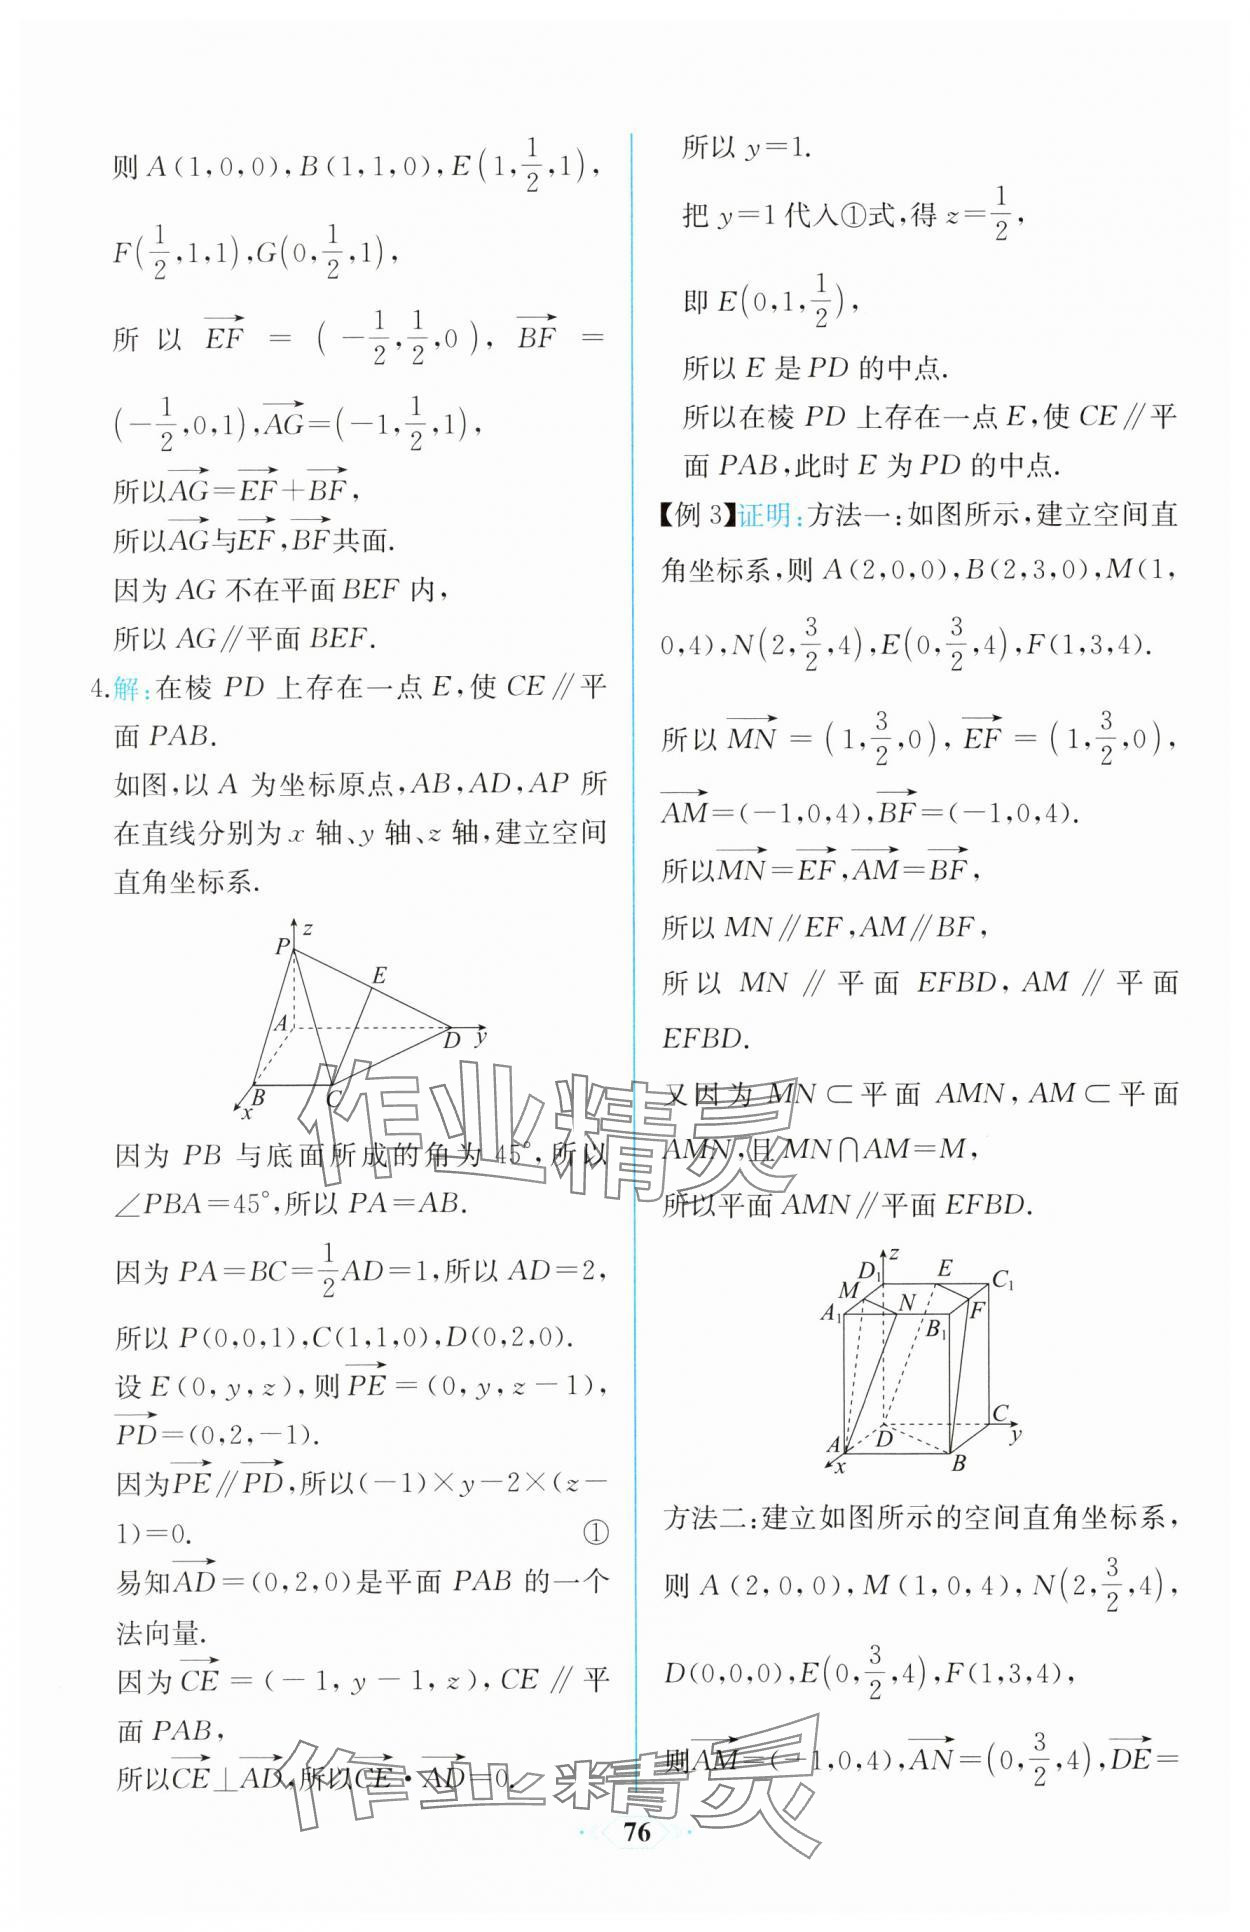 则 A(1,0,0),B(1,1,0),E(1,1/2,1),
F(1/2,1,1),G(0,1/2,1),
所以 EF→ = (-1/2,1/2,0), BF→ =
(-1/2,0,1),AG→=(-1,1/2,1),
所以AG→=EF→+BF→,
所以AG→与EF→,BF→共面.
因为 AG 不在平面 BEF 内,
所以 AG∥平面 BEF.
4.解:在棱 PD 上存在一点 E,使 CE∥平
面 PAB.
如图,以 A 为坐标原点,AB,AD,AP 所
在直线分别为 x 轴、y 轴、z 轴,建立空间
直角坐标系.
z
P
E
A
D
y
B
C
x
因为 PB 与底面所成的角为 45°,所以
∠PBA=45°,所以 PA=AB.
因为 PA=BC=1/2AD=1,所以 AD=2,
所以 P(0,0,1),C(1,1,0),D(0,2,0).
设 E(0,y,z),则PE→=(0,y,z-1),
PD→=(0,2,-1).
因为PE→∥PD→,所以(-1)×y-2×(z-
1)=0. ①
易知AD→=(0,2,0)是平面 PAB 的一个
法向量.
因为CE→=(-1,y-1,z),CE∥平
面 PAB,
所以CE→⊥AD→,所以CE→·AD→=0.
所以 y=1.
把 y=1代入①式,得 z=1/2,
即 E(0,1,1/2),
所以 E 是 PD 的中点.
所以在棱 PD 上存在一点 E,使 CE∥平
面 PAB,此时 E 为 PD 的中点.
【例 3】证明:方法一:如图所示,建立空间直
角坐标系,则 A(2,0,0),B(2,3,0),M(1,
0,4),N(2,3/2,4),E(0,3/2,4),F(1,3,4).
所以MN→=(1,3/2,0),EF→=(1,3/2,0),
AM→=(-1,0,4),BF→=(-1,0,4).
所以MN→=EF→,AM→=BF→,
所以 MN∥EF,AM∥BF,
所以 MN∥平面 EFBD,AM∥平面
EFBD.
又因为 MN⊂平面 AMN,AM⊂平面
AMN,且 MN∩AM=M,
所以平面 AMN∥平面 EFBD.
z
D₁
E
C₁
M
N
F
A₁
B₁
C
D
y
A
x
B
方法二:建立如图所示的空间直角坐标系,
则 A(2,0,0),M(1,0,4),N(2,3/2,4),
D(0,0,0),E(0,3/2,4),F(1,3,4),
则AM→=(-1,0,4),AN→=(0,3/2,4),DE→=
作业精灵
作业精灵
76